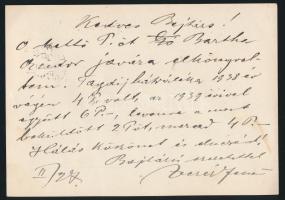 Kedves Bajtárs!
A kettő P.-őt Bartha
Sándor javára elkönyvel-
tem. Tagdíjhátraléka 1938 év
végén 4 P. volt, az 1939 évivel
együtt 6 P.–, levonva a most
beküldött 2 P.-őt, marad 4 P.–
Hálás köszönet és
Bajtársi szeretettel
II/27.